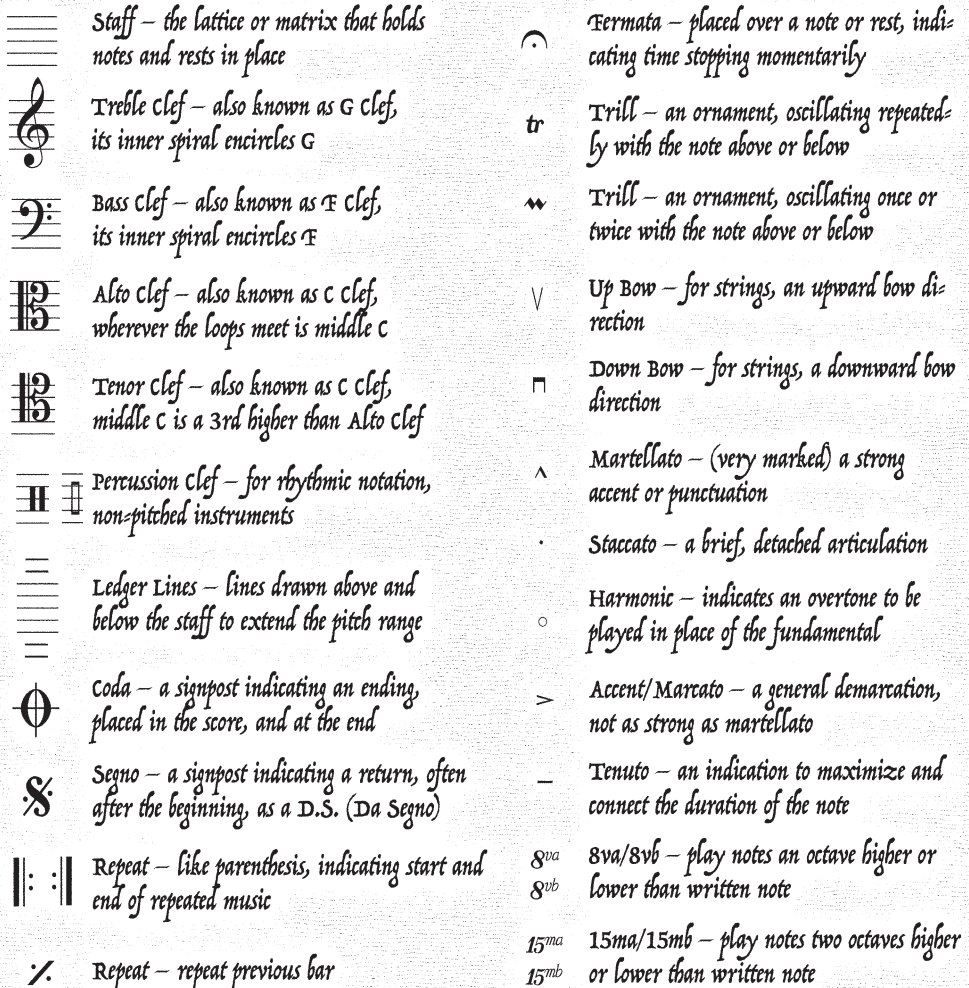 Staff – the lattice or matrix that holds
notes and rests in place
Treble Clef – also known as G Clef,
its inner spiral encircles G
Bass Clef – also known as F Clef,
its inner spiral encircles F
Alto Clef – also known as C Clef,
wherever the loops meet is middle C
Tenor Clef – also known as C Clef,
middle C is a 3rd higher than Alto Clef
Percussion Clef – for rhythmic notation,
non-pitched instruments
Ledger Lines – lines drawn above and
below the staff to extend the pitch range
Coda – a signpost indicating an ending,
placed in the score, and at the end
Segno – a signpost indicating a return, often
after the beginning, as a D.S. (Da Segno)
Repeat – like parenthesis, indicating start and
end of repeated music
Repeat – repeat previous bar
Fermata – placed over a note or rest, indi-
cating time stopping momentarily
tr
Trill – an ornament, oscillating repeated-
ly with the note above or below
Trill – an ornament, oscillating once or
twice with the note above or below
Up Bow – for strings, an upward bow di-
rection
Down Bow – for strings, a downward bow
direction
Martellato – (very marked) a strong
accent or punctuation
Staccato – a brief, detached articulation
Harmonic – indicates an overtone to be
played in place of the fundamental
Accent/Marcato – a general demarcation,
not as strong as martellato
Tenuto – an indication to maximize and
connect the duration of the note
8va
8vb
8va/8vb – play notes an octave higher or
lower than written note
15ma
15mb
15ma/15mb – play notes two octaves higher
or lower than written note